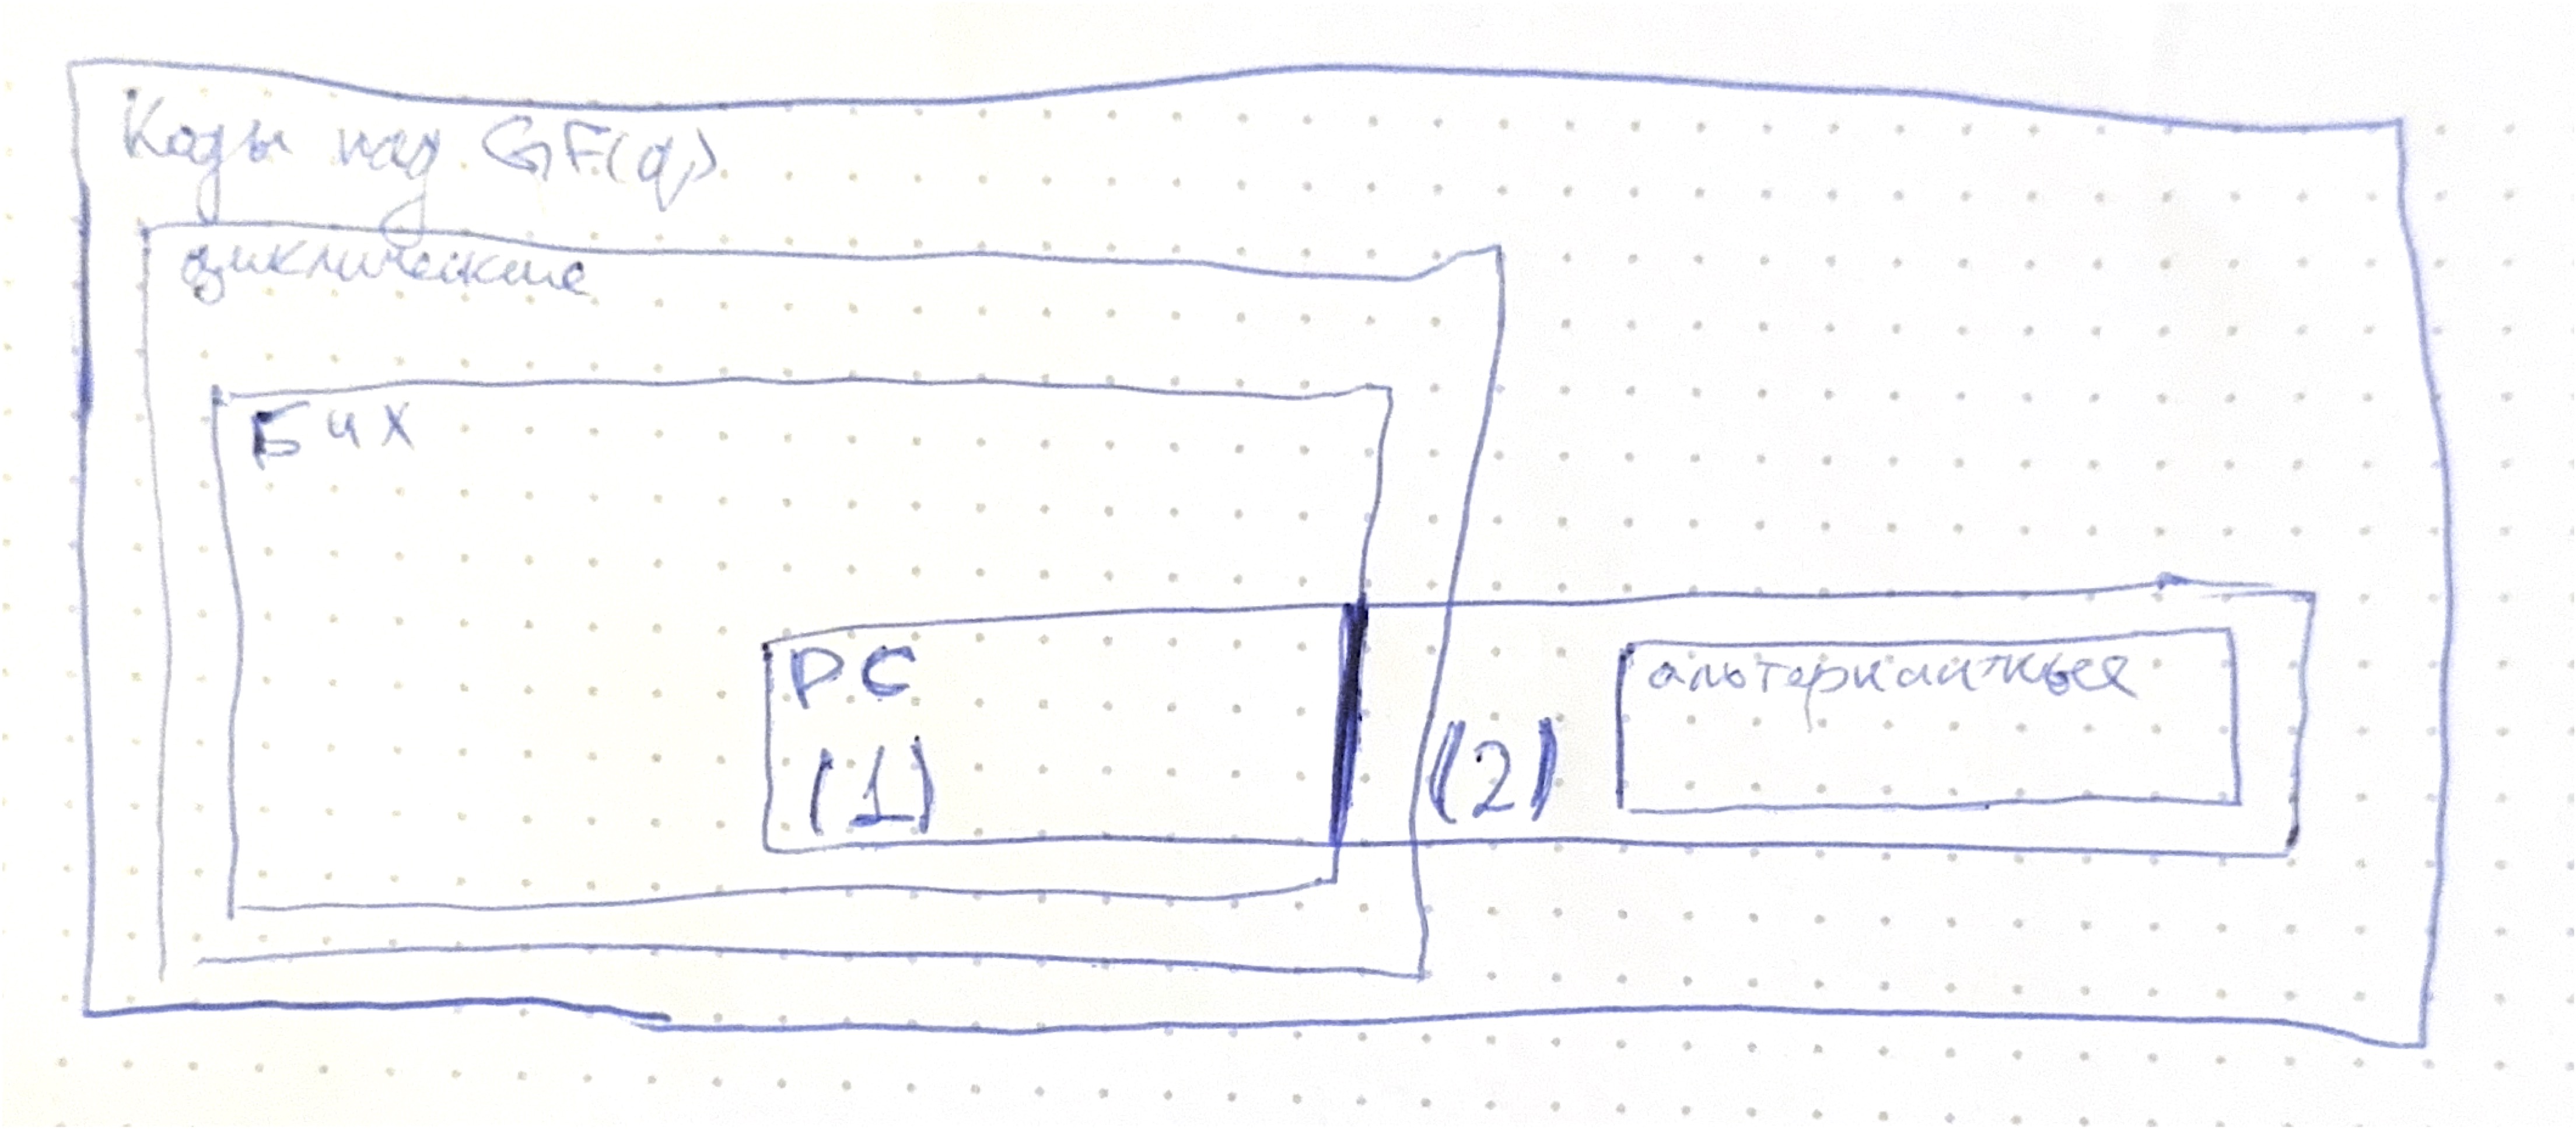 Коды над GF(q)
циклические
БЧХ
РС
альтернантные
(1)
(2)